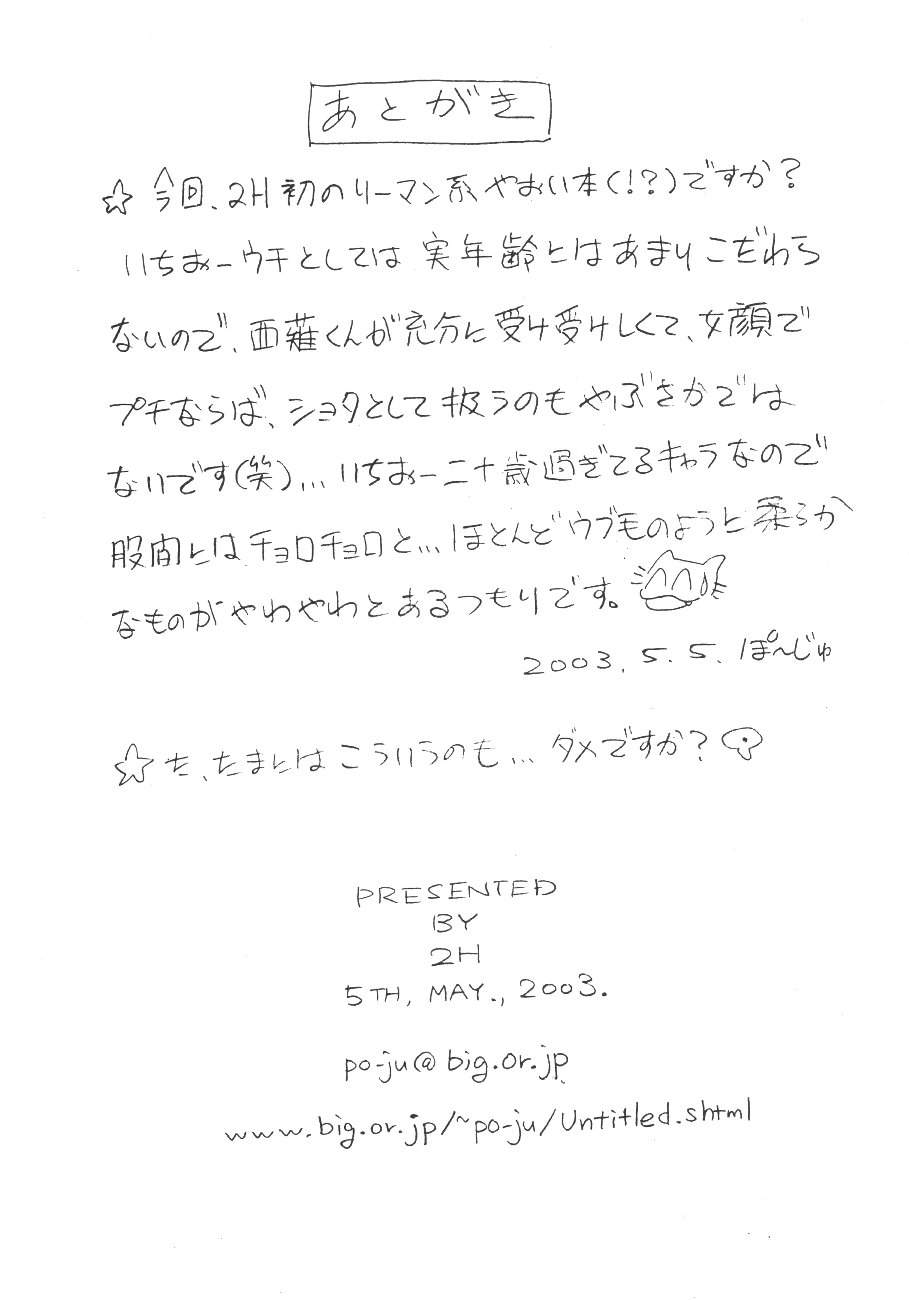 あとがき
☆今回、2H初のリーマン系やおい本(!?)ですか?
いちおーウチとしては実年齢とはあまりこだわら
ないので、西薙くんが充分に受け受けしくて、女顔で
プチならば、ショタとして扱うのもやぶさかでは
ないです(笑)...いちおー二十歳過ぎてるキャラなので
股間にはチョロチョロと...ほとんどウブ毛のように柔らか
なものがやわやわとあるつもりです。
2003.5.5.ぽ〜じゅ
☆た、たまにはこういうのも...ダメですか?
PRESENTED
BY
2H
5TH, MAY., 2003.
po-ju@big.or.jp
www.big.or.jp/~po-ju/Untitled.shtml